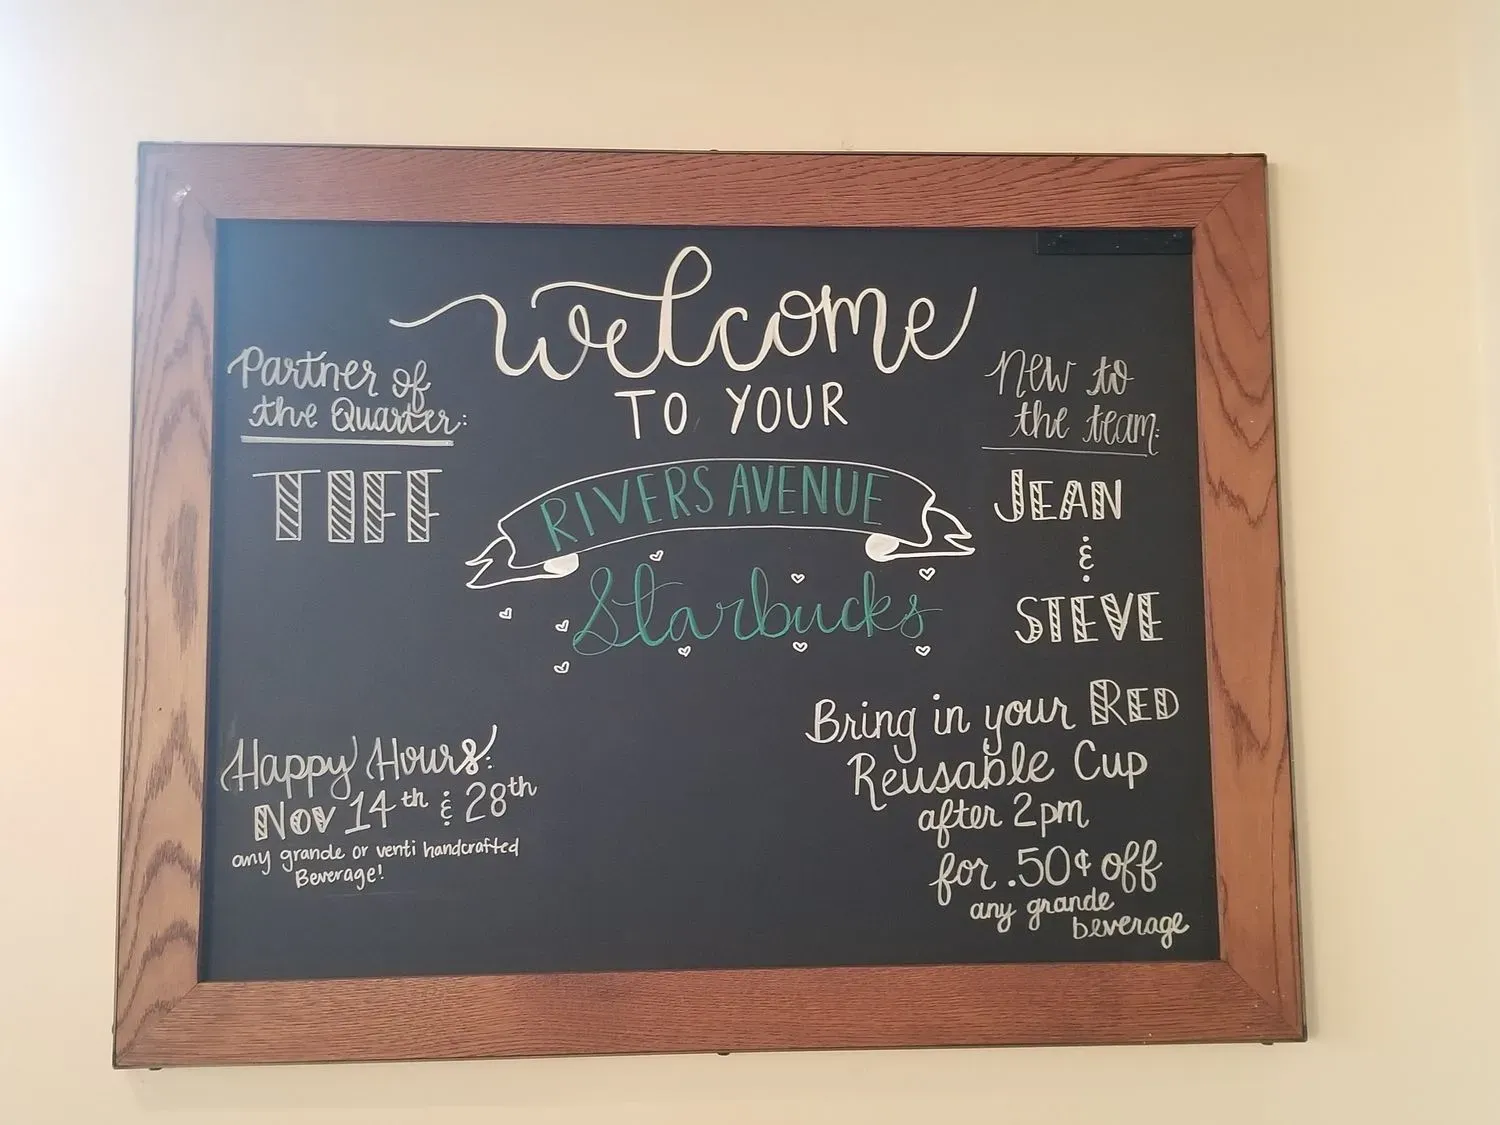 Welcome
TO YOUR
RIVERS AVENUE
Starbucks
Partner of
the Quarter:
TIFF
New to
the team:
JEAN
&
STEVE
Happy Hours:
Nov 14th & 28th
any grande or venti handcrafted
Beverage!
Bring in your RED
Reusable Cup
after 2pm
for .50¢ off
any grande
beverage